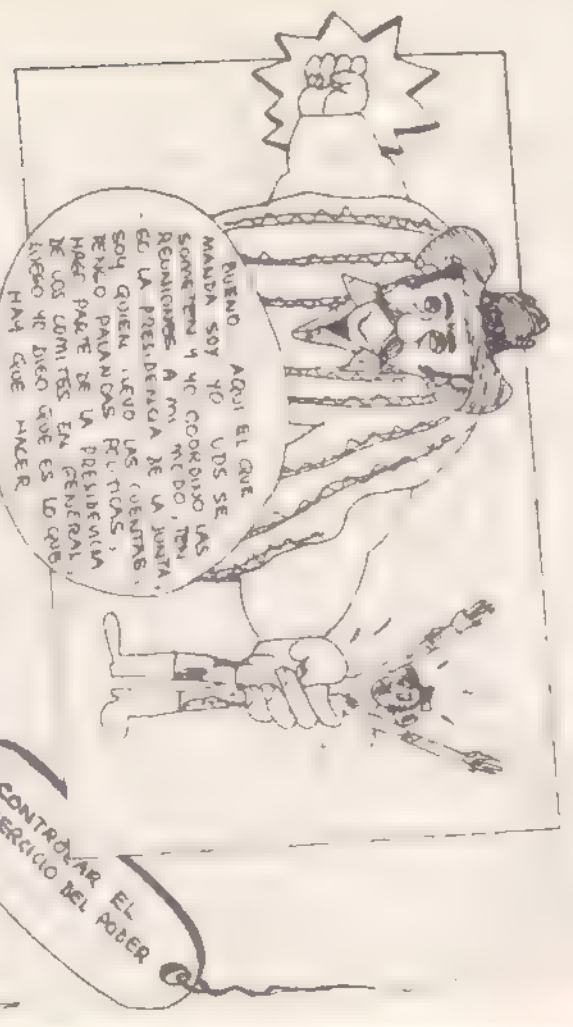 BUENO AQUI EL QUE
MANDA SOY YO UDS SE
SOMETEN Y YO COORDINO LAS
REUNIONES A MI MODO, TEN
GO LA PRESIDENCIA DE LA JUNTA,
SOY QUIEN LLEVO LAS CUENTAS,
TENGO PALANCAS POLITICAS,
HAGO PARTE DE LA PRESIDENCIA
DE LOS COMITES EN GENERAL,
LUEGO YO DIGO QUE ES LO QUE
HAY QUE HACER
CONTROLAR EL
EJERCICIO DEL PODER